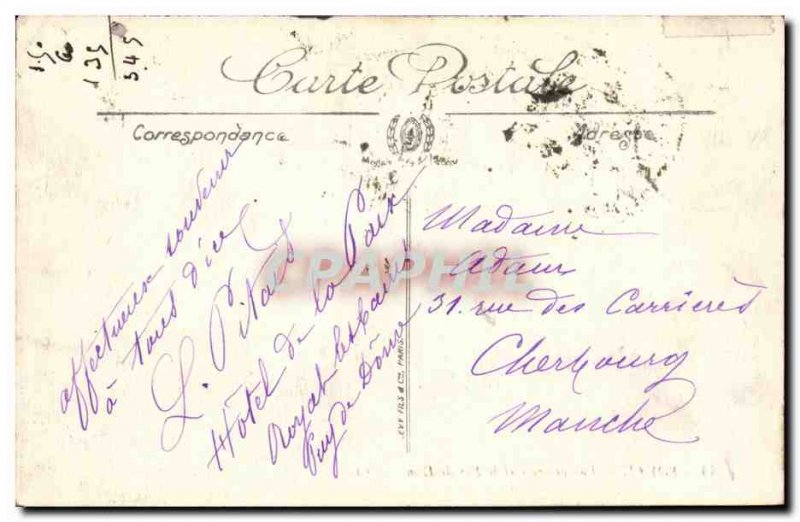 15.
60
135
345
Carte Postale
Correspondance
Adresse
affectueux souvenir
à tous d'ici
L. Pitard
Hôtel de la Paix
Royat les bains
Puy de Dôme
Madame
Adam
31. rue des Carrières
Cherbourg
Manche
CPAPHIL
LEVY FILS & Cie. PARIS